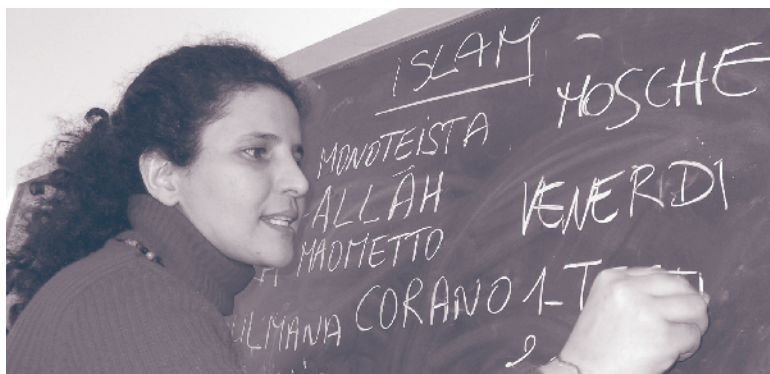 ISLAM
MONOTEISTA
ALLÂH
MAOMETTO
CORANO
MOSCHE
VENERDÌ
1-
2